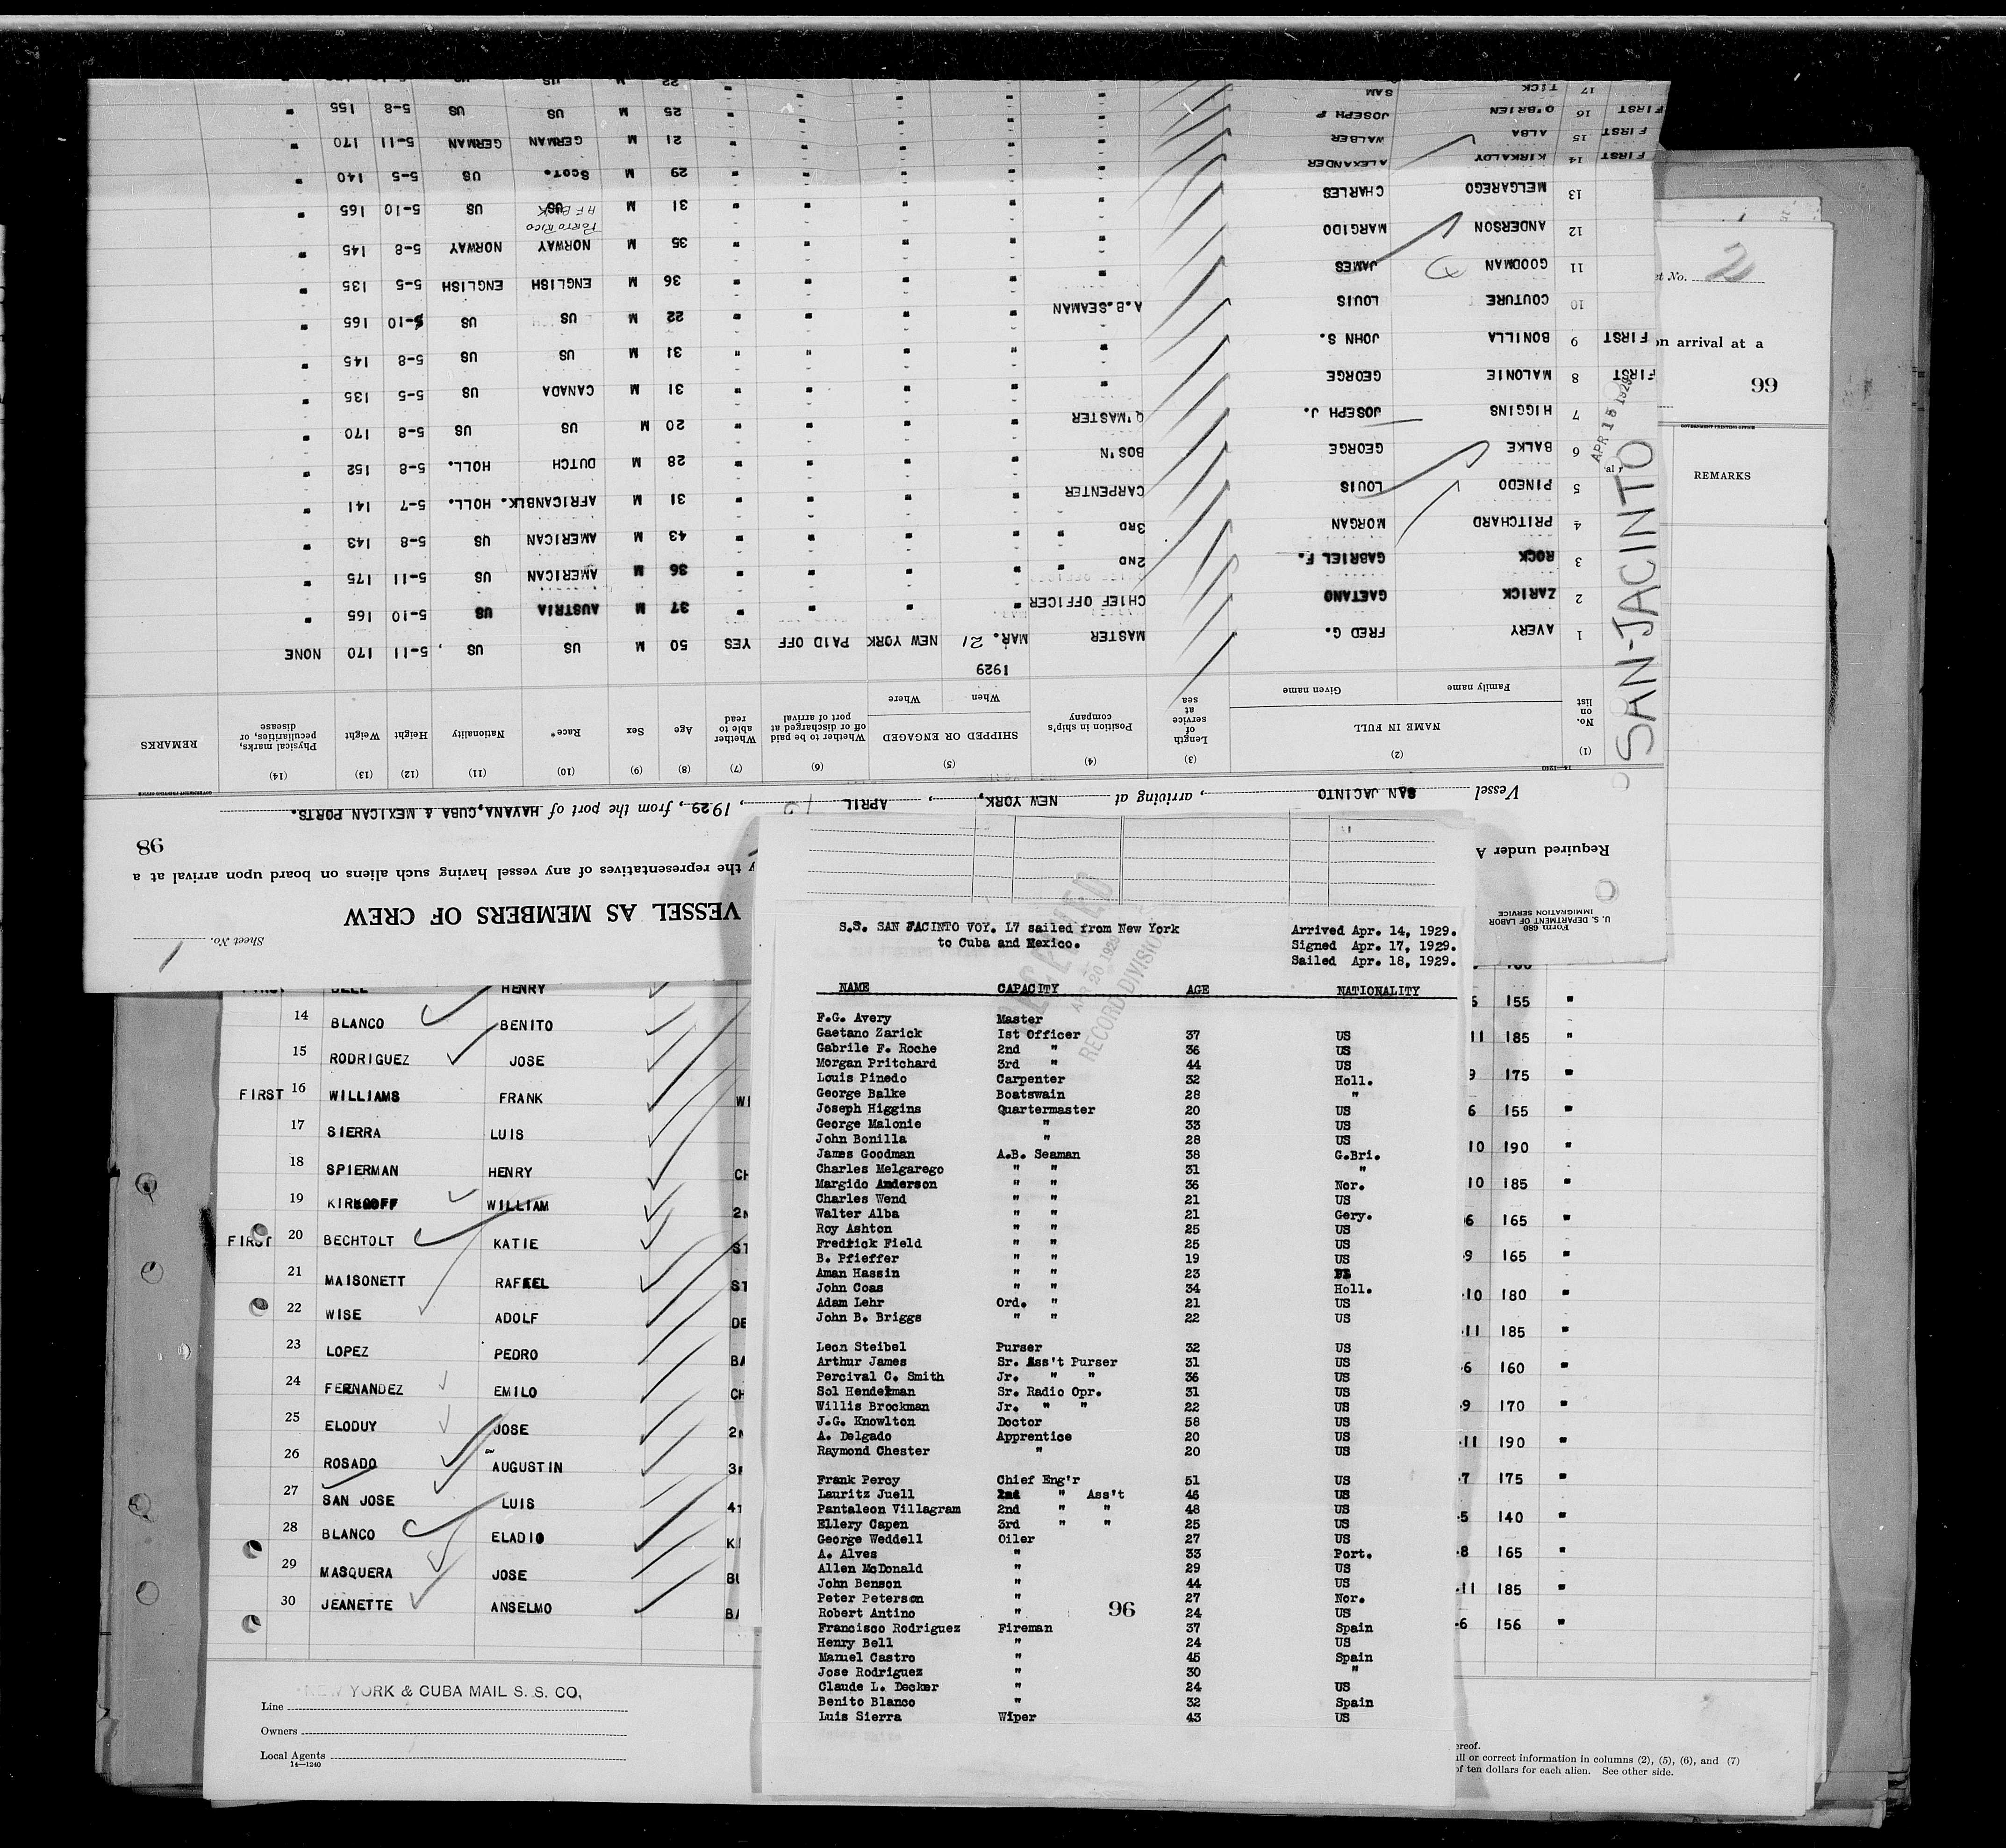 Form 680
U. S. DEPARTMENT OF LABOR
IMMIGRATION SERVICE
Sheet No. 1
VESSEL AS MEMBERS OF CREW
Required under A
the representatives of any vessel having such aliens on board upon arrival at a
98
Vessel SAN JACINTO, arriving at NEW YORK, APRIL, 1929, from the port of HAVANA, CUBA & MEXICAN PORTS.
14-1240
GOVERNMENT PRINTING OFFICE
(1) (2) (3) (4) (5) (6) (7) (8) (9) (10) (11) (12) (13) (14)
No. on list NAME IN FULL Length of service at sea Position in ship's company SHIPPED OR ENGAGED Whether to be paid off or discharged at port of arrival Whether able to read Age Sex Race* Nationality Height Weight Physical marks, peculiarities, or disease REMARKS
Family name Given name When Where
1929
1 AVERY FRED G. MASTER MAR. 21 NEW YORK PAID OFF YES 50 M US US 5-11 170 NONE
2 ZARICK GAETANO CHIEF OFFICER " " " " 37 M AUSTRIA US 5-10 165 "
3 ROCK GABRIEL F. 2ND " " " " " 36 M AMERICAN US 5-11 175 "
4 PRITCHARD MORGAN 3RD " " " " " 43 M AMERICAN US 5-8 143 "
5 PINEDO LOUIS CARPENTER " " " " 31 M AFRICANBLK. HOLL. 5-7 141 "
6 BALKE GEORGE BOS'N " " " " 28 M DUTCH HOLL. 5-8 152 "
7 HIGGINS JOSEPH J. Q'MASTER " " " " 20 M US US 5-8 170 "
FIRST 8 MALONIE GEORGE " " " " " 31 M CANADA US 5-5 135 "
FIRST 9 BONILLA JOHN S. " " " " " 31 M US US 5-8 145 "
10 COUTURE LOUIS A.B.SEAMAN " " " " 22 M US US 5-10 165 "
11 GOODMAN JAMES " " " " " 36 M ENGLISH ENGLISH 5-5 135 "
12 ANDERSON MARGIDO " " " " " 35 M NORWAY NORWAY 5-8 145 "
PORTO RICO
13 MELGAREGO CHARLES " " " " " 31 M US AF BLK US 5-10 165 "
FIRST 14 KIRKALDY ALEXANDER " " " " " 29 M SCOT. US 5-5 140 "
FIRST 15 ALBA WALBER " " " " " 21 M GERMAN GERMAN 5-11 170 "
FIRST 16 O'BRIEN JOSEPH P " " " " " 25 M US US 5-8 155 "
17 TICK SAM " " " " " 22 M US US
SAN-JACINTO
APR 15 1929
et No. 2
on arrival at a
99
GOVERNMENT PRINTING OFFICE
REMARKS
FIRST BELL HENRY
14 BLANCO BENITO 5 155 "
15 RODRIGUEZ JOSE 11 185 "
FIRST 16 WILLIAMS FRANK WI 9 175 "
17 SIERRA LUIS 6 155 "
18 SPIERMAN HENRY CH 10 190 "
19 KIRKGOFF WILLIAM 2N 10 185 "
FIRST 20 BECHTOLT KATIE ST 6 165 "
21 MAISONETT RAFAEL ST 9 165 "
22 WISE ADOLF DE -10 180 "
23 LOPEZ PEDRO BA -11 185 "
24 FERNANDEZ EMILO CH -6 160 "
25 ELODUY JOSE 2N -9 170 "
26 ROSADO AUGUSTIN 3R -11 190 "
27 SAN JOSE LUIS 4T -7 175 "
28 BLANCO ELADIO KI -5 140 "
29 MASQUERA JOSE BU -8 165 "
30 JEANETTE ANSELMO BA -11 185 "
-6 156 "
Line NEW YORK & CUBA MAIL S. S. CO.
Owners
Local Agents
14—1240
ereof.
ull or correct information in columns (2), (5), (6), and (7)
of ten dollars for each alien. See other side.
RECEIVED
APR 20 1929
RECORD DIVISION
S.S. SAN JACINTO VOY. 17 sailed from New York
to Cuba and Mexico.
Arrived Apr. 14, 1929.
Signed Apr. 17, 1929.
Sailed Apr. 18, 1929.
NAME CAPACITY AGE NATIONALITY
F.G. Avery Master
Gaetano Zarick 1st Officer 37 US
Gabrile F. Roche 2nd " 36 US
Morgan Pritchard 3rd " 44 US
Louis Pinedo Carpenter 32 Holl.
George Balke Boatswain 28 "
Joseph Higgins Quartermaster 20 US
George Malonie " 33 US
John Bonilla " 28 US
James Goodman A.B. Seaman 38 G.Bri.
Charles Melgarego " " 31 "
Margido Anderson " " 36 Nor.
Charles Wend " " 21 US
Walter Alba " " 21 Gery.
Roy Ashton " " 25 US
Fredrick Field " " 25 US
B. Pfieffer " " 19 US
Aman Hassin " " 23
John Coas " " 34 Holl.
Adam Lehr Ord. " 21 US
John B. Briggs " " 22 US
Leon Steibel Purser 32 US
Arthur James Sr. Ass't Purser 31 US
Percival C. Smith Jr. " " 36 US
Sol Hendelman Sr. Radio Opr. 31 US
Willis Brockman Jr. " " 22 US
J.G. Knowlton Doctor 58 US
A. Delgado Apprentice 20 US
Raymond Chester " 20 US
Frank Percy Chief Eng'r 51 US
Lauritz Juell 2nd " Ass't 46 US
Pantaleon Villagram 2nd " " 48 US
Ellery Capen 3rd " " 25 US
George Weddell Oiler 27 US
A. Alves " 33 Port.
Allen McDonald " 29 US
John Benson " 44 US
Peter Peterson " 27 Nor.
Robert Antino " 24 US
96
Francisco Rodriguez Fireman 37 Spain
Henry Bell " 24 US
Manuel Castro " 45 Spain
Jose Rodriguez " 30 "
Claude L. Decker " 24 US
Benito Blanco " 32 Spain
Luis Sierra Wiper 43 US